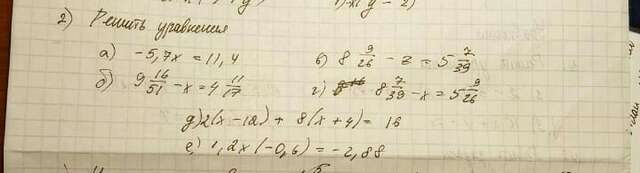 2) Решить уравнения
а) -5,7x = 11,4 в) 8 9/26 - z = 5 7/39
б) 9 16/51 - x = 4 11/17 г) 8 7/39 - x = 5 9/26
д) 2(x-12) + 8(x+4) = 16
е) 1,2x(-0,6) = -2,88